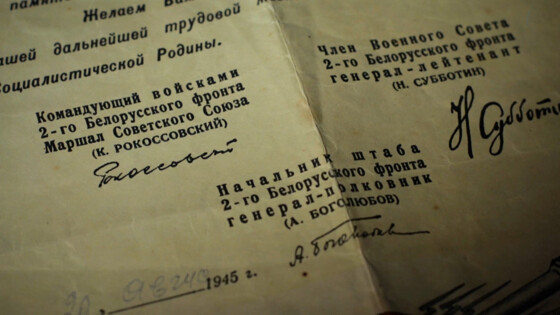 памят
Желаем Ва
ашей дальнейшей трудовой
Социалистической Родины.
Командующий войсками
2-го Белорусского фронта
Маршал Советского Союза
(К. РОКОССОВСКИЙ)
Рокоссовский
Член Военного Совета
2-го Белорусского фронта
генерал-лейтенант
(Н. СУББОТИН)
Н Суббот
Начальник штаба
2-го Белорусского фронта
генерал-полковник
(А. БОГОЛЮБОВ)
А. Боголюбов
20 августа 1945 г.